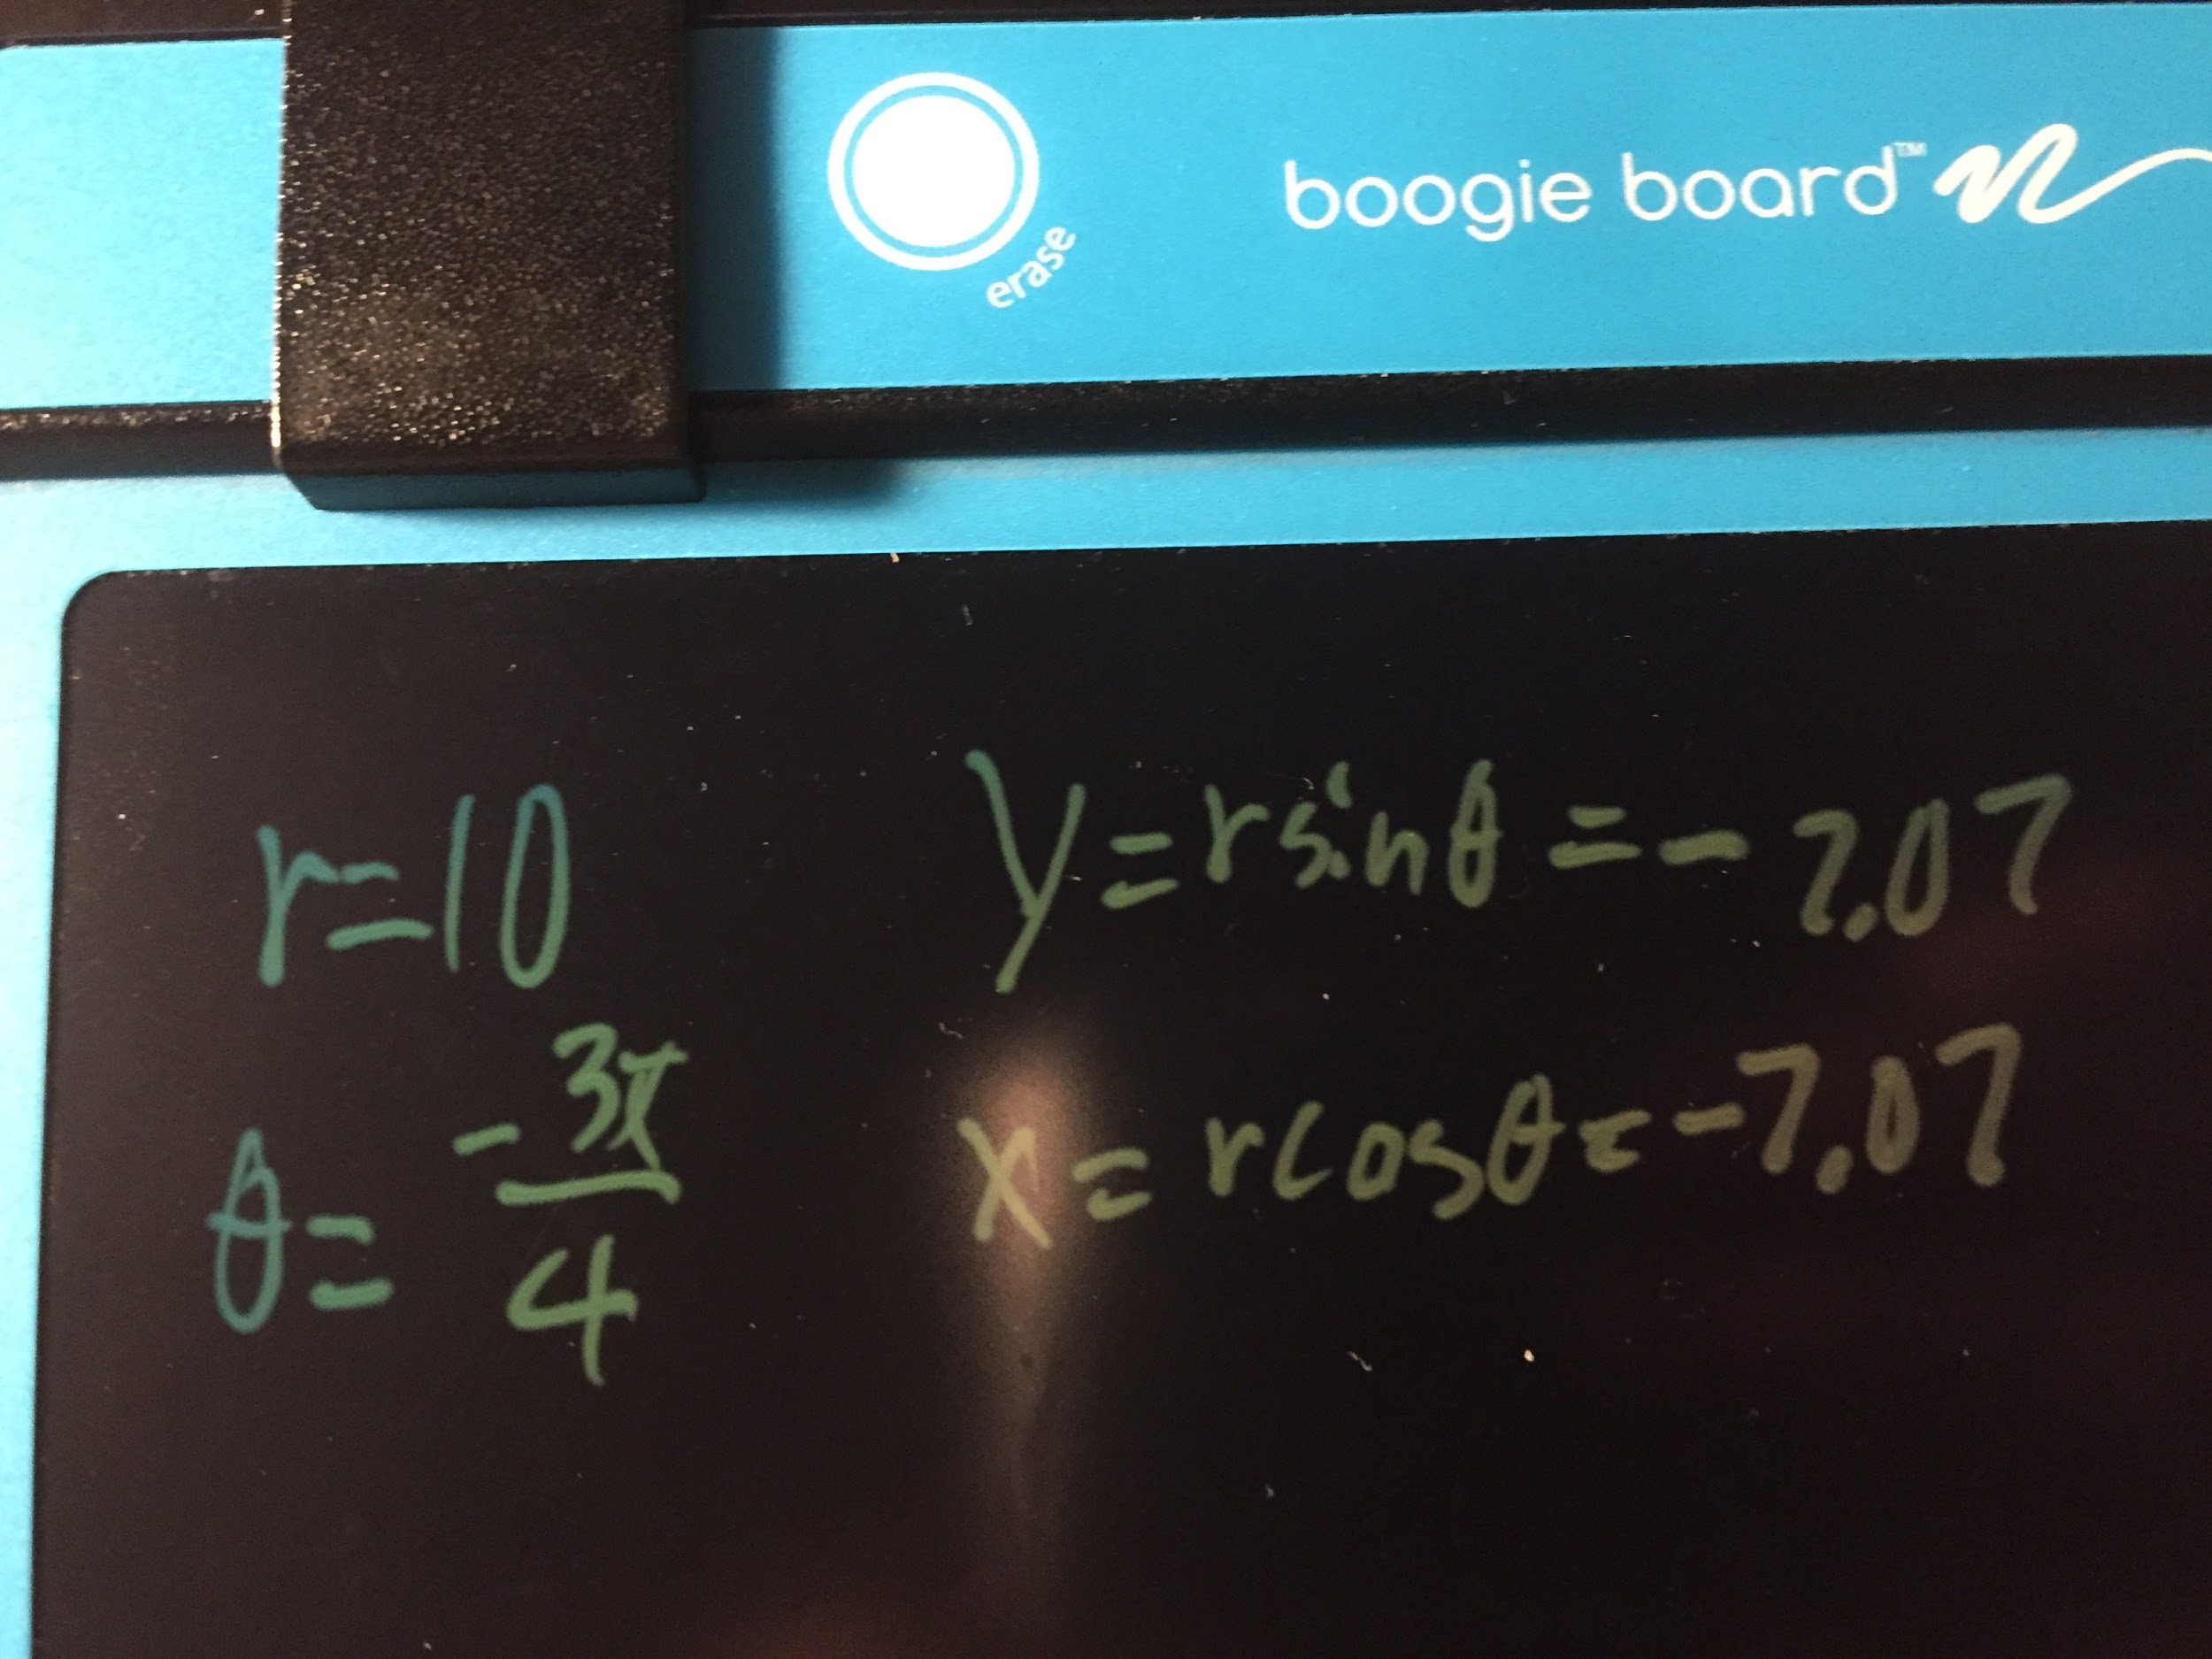 erase
boogie board™
r=10
y=rsinθ=-7.07
θ=-3π/4
x=rcosθ=-7.07